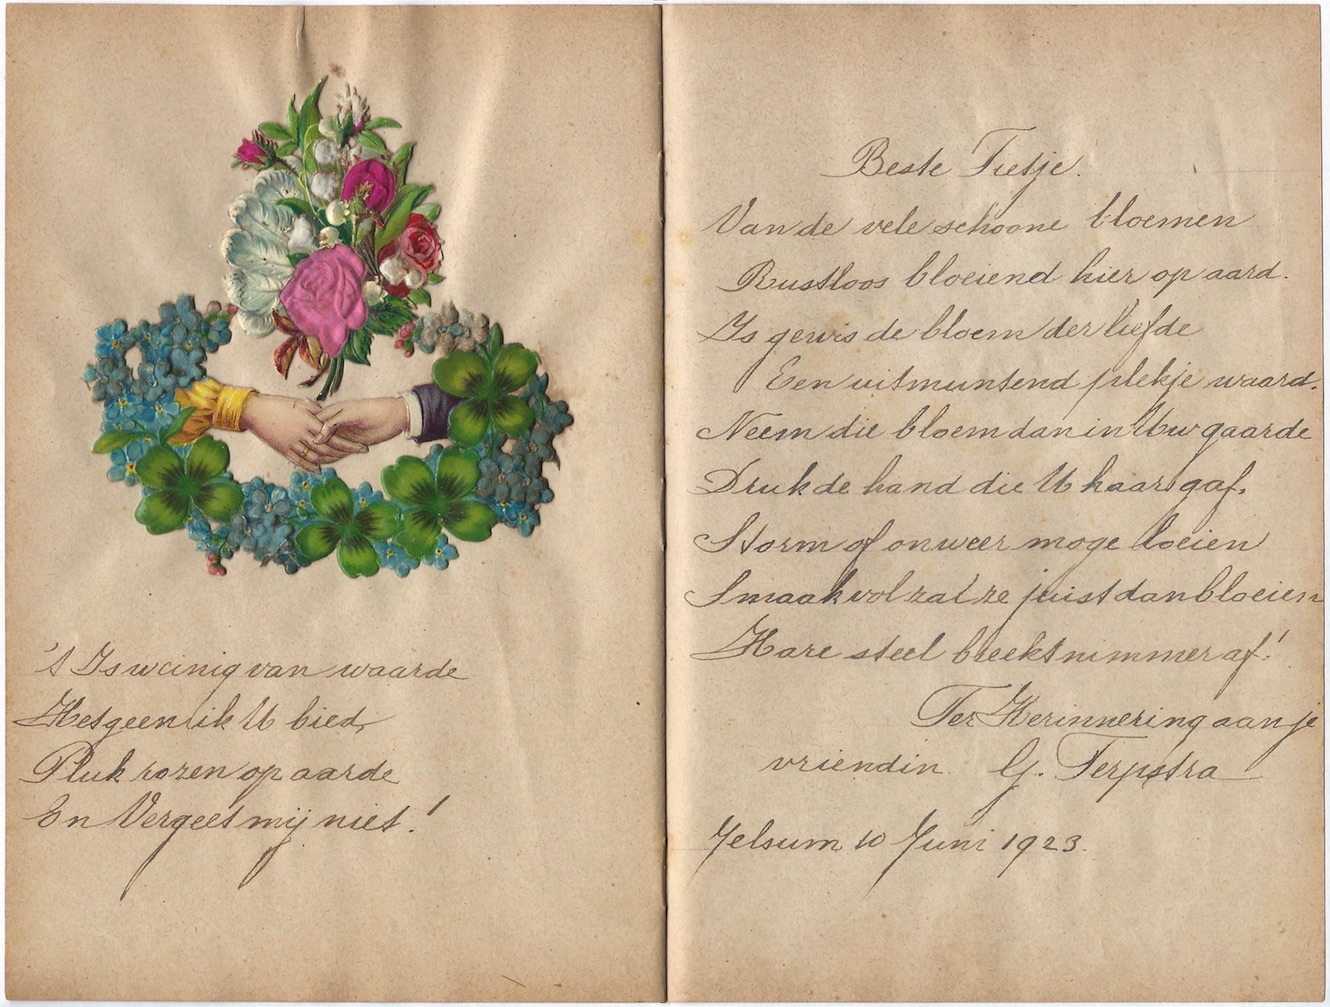 't Is weinig van waarde
Hetgeen ik U bied,
Pluk rozen op aarde
En Vergeet mij niet!
Beste Tietje.
Van de vele schoone bloemen
Rustloos bloeiend hier op aard.
Is gewis de bloem der liefde
Een uitmuntend plekje waard.
Neem die bloem dan in Uw gaarde
Druk de hand die U haar gaf.
Storm of onweer moge loeien
Smaakvol zal ze juist dan bloeien
Hare steel breekt nimmer af!
Ter Herinnering aan je
vriendin G. Terpstra
Jelsum 10 Juni 1923.